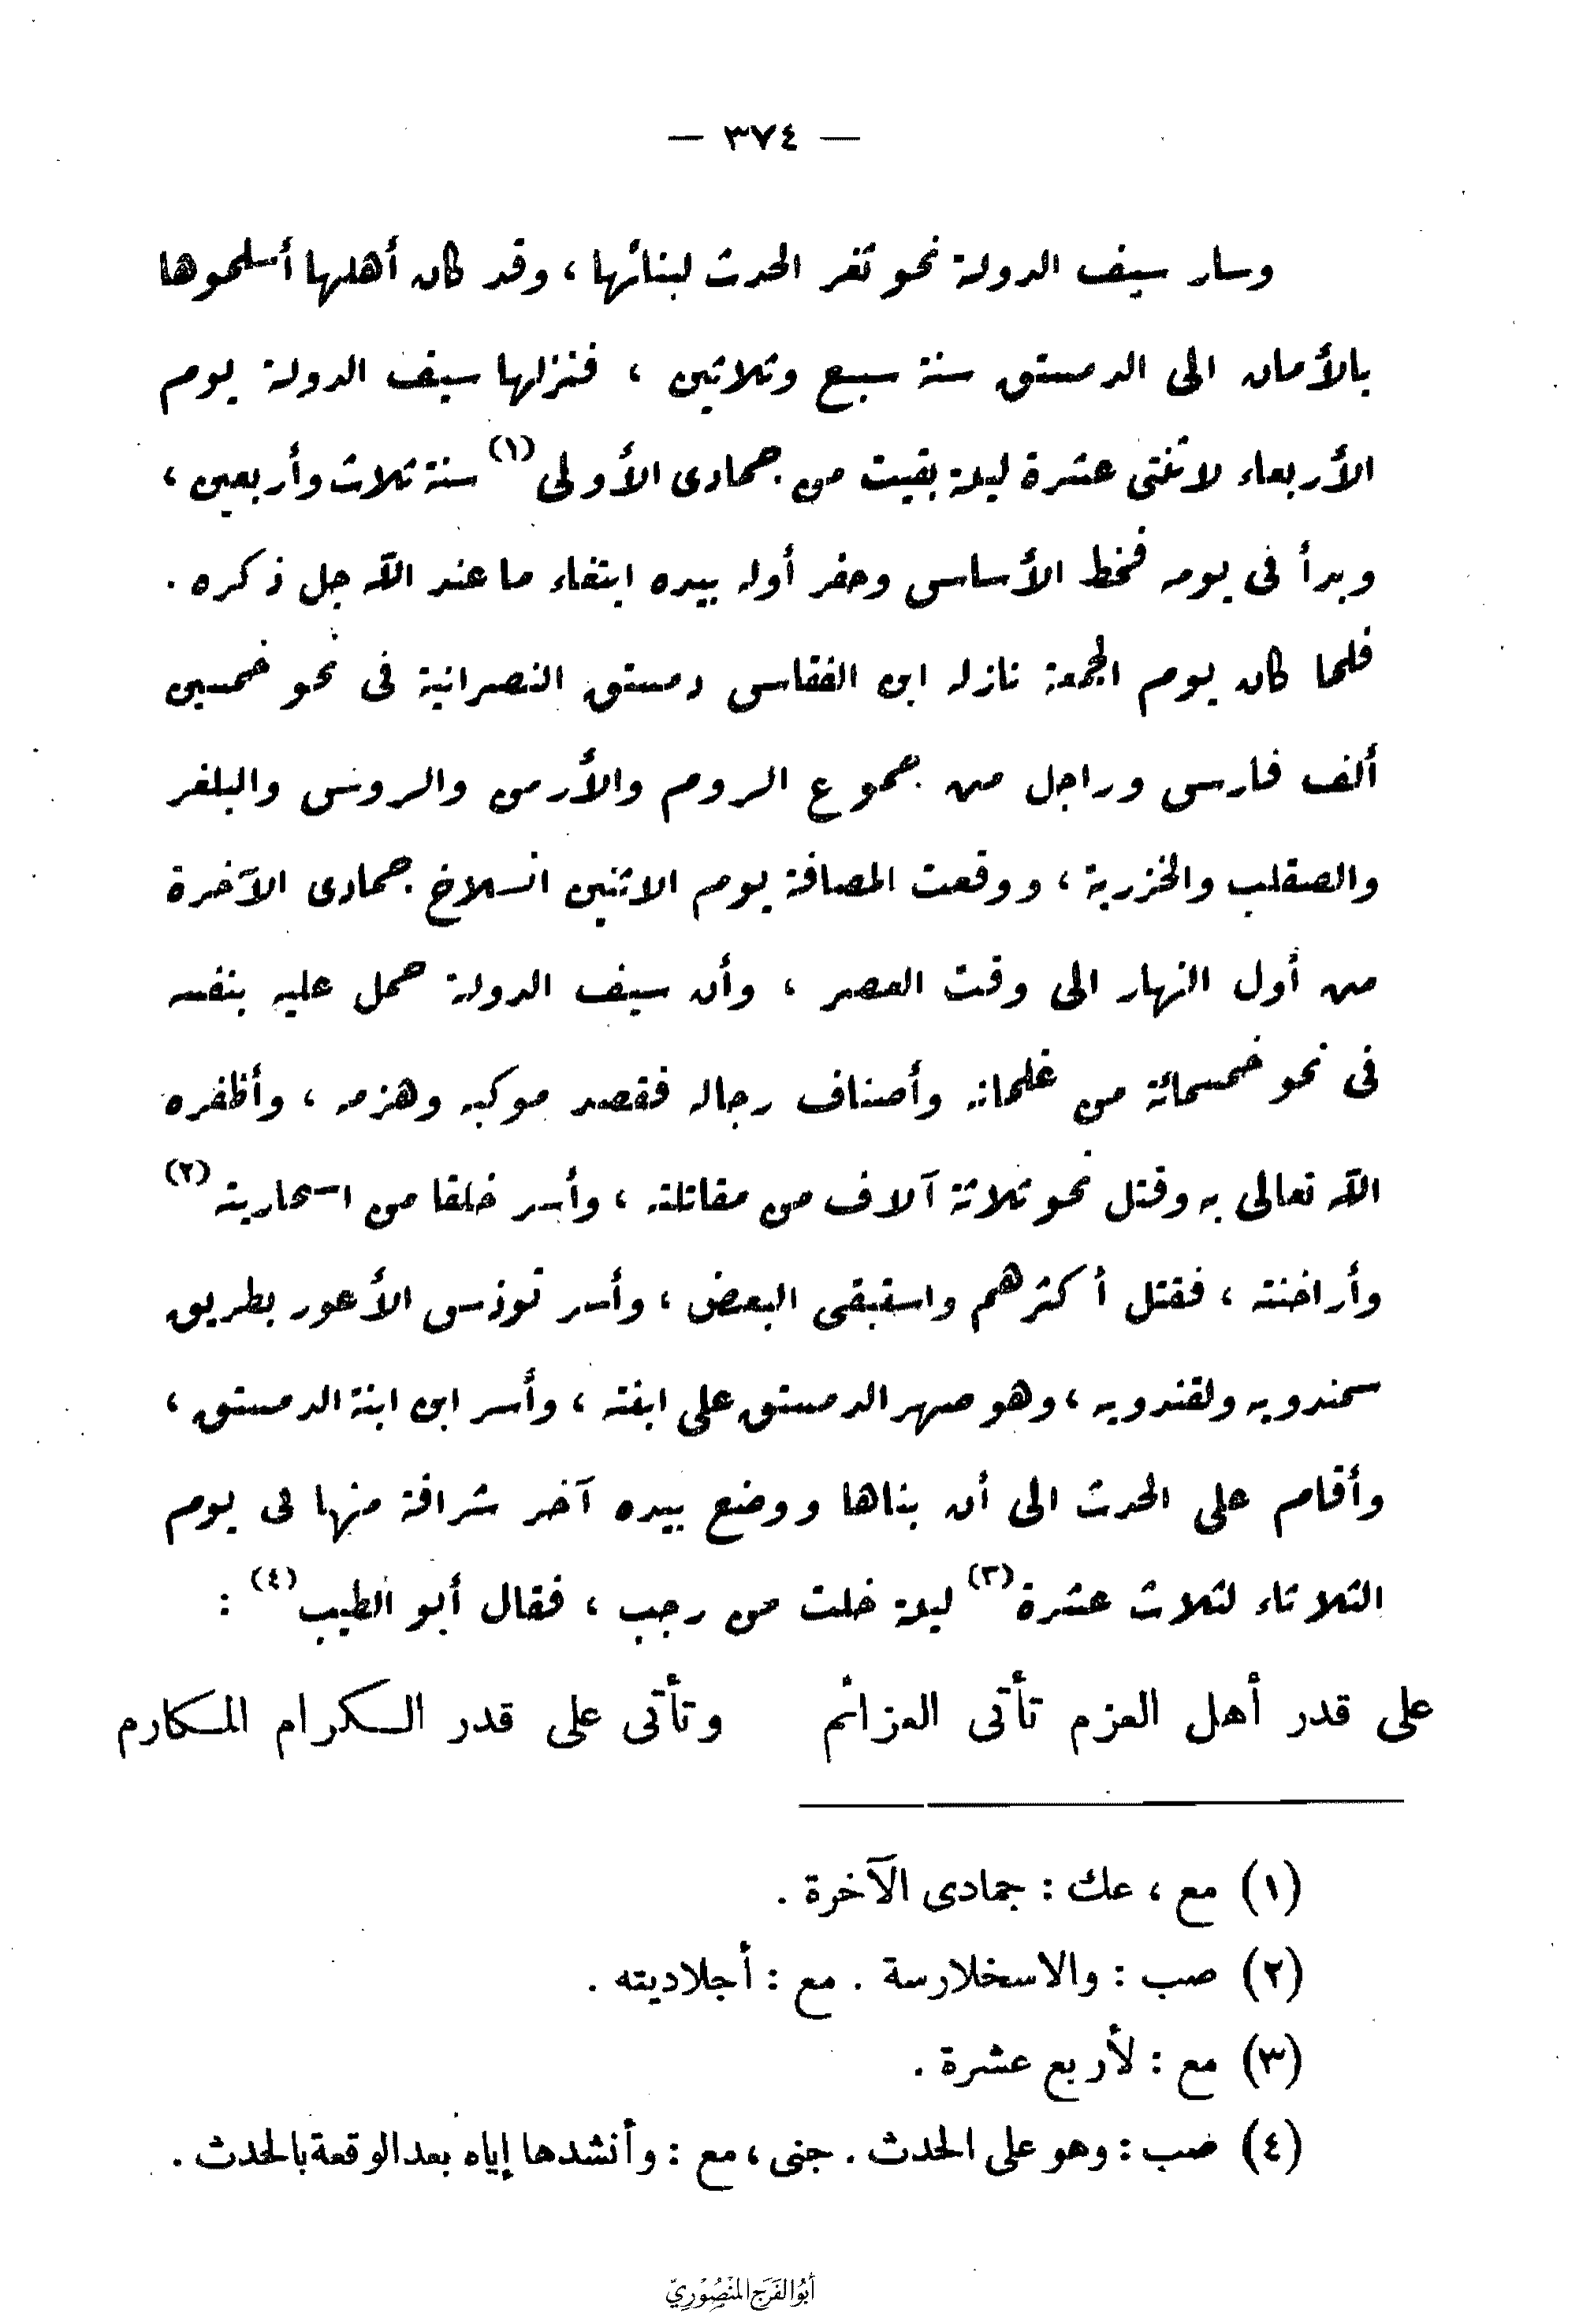 — ٣٧٤ —
وسار سيف الدولة نحو ثغر الحدث لبنائها ، وقد كان أهلها أسلموها
بالأمان الى الدمستق سنة سبع وثلاثين ، فنزلها سيف الدولة يوم
الأربعاء لاثنتى عشرة ليلة بقيت من جمادى الأولى (١) سنة ثلاث وأربعين ،
وبدأ فى يومه فخط الأساس وحفر أوله بيده ابتغاء ما عند الله جل ذكره .
فلما كان يوم الجمعة نازله ابن الفقاس دمستق النصرانية فى نحو خمسين
ألف فارس وراجل من جموع الروم والأرمن والروس والبلغر
والصقلب والخزرية ، ووقعت المصافة يوم الاثنين انسلاخ جمادى الآخرة
من أول النهار الى وقت العصر ، وأن سيف الدولة حمل عليه بنفسه
فى نحو خمسمائة من غلمانه وأصناف رجاله فقصد موكبه وهزمه ، وأظفره
الله تعالى به وقتل نحو ثلاثة آلاف من مقاتلته ، وأسر خلقا من اسحاريته (٢)
وأراخنته ، فقتل أكثرهم واستبقى البعض ، وأسر توذس الأعور بطريق
سمندويه ولقندويه ، وهو صهر الدمستق على ابنته ، وأسر ابن ابنة الدمستق ،
وأقام على الحدث الى أن بناها ووضع بيده آخر شرافة منها فى يوم
الثلاثاء لثلاث عشرة (٣) ليلة خلت من رجب ، فقال أبو الطيب (٤) :
على قدر أهل العزم تأتى العزائم وتأتى على قدر الكرام المكارم
(١) مع ، عك : جمادى الآخرة .
(٢) صب : والاسخلارسة . مع : أجلاديته .
(٣) مع : لأربع عشرة .
(٤) ضب : وهو على الحدث . جنى ، مع : وأنشدها إياه بعد الوقعة بالحدث .
أبُو الفَرَج المَنْصُوْرِيّ